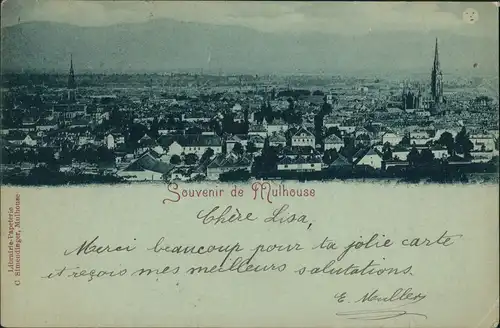 Souvenir de Mulhouse
Librairie-Papeterie
C Simendinger, Mulhouse
Chère Lisa,
Merci beaucoup pour ta jolie carte
et reçois mes meilleurs salutations.
E. Muller